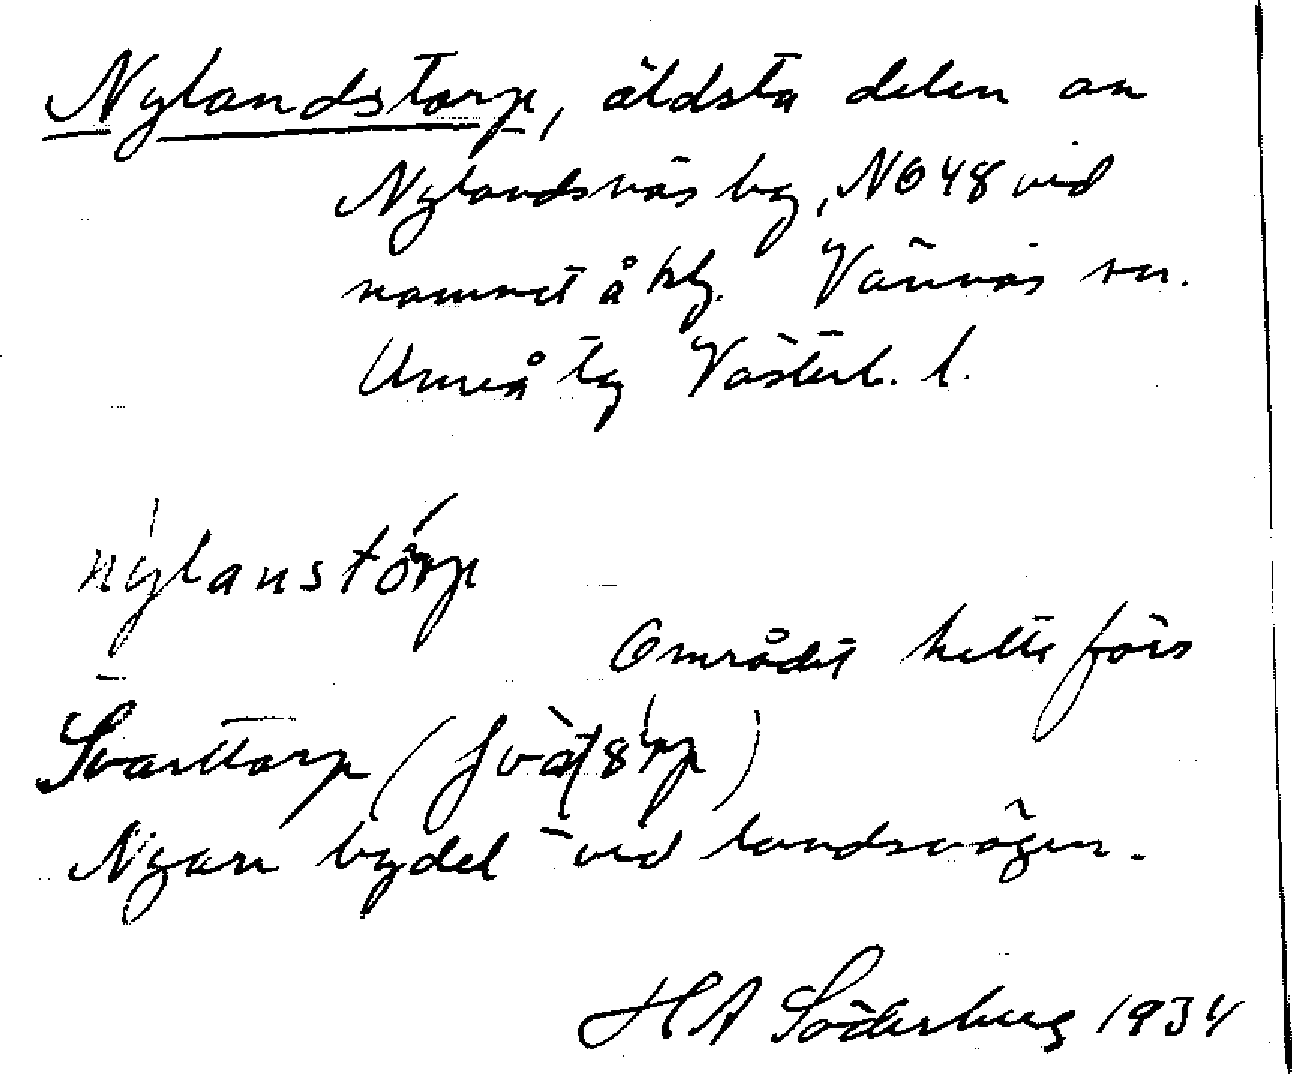 Nylandstorp, äldsta delen av
Nylandsnäs by, NO48 vid
namnet å kbl. Vännäs sn.
Umeå tg Västerb. l.
nylanstórp
Området hette förs
Svarttorp ( )
Nyare bydel vid landsvägen.
HA Söderberg 1934